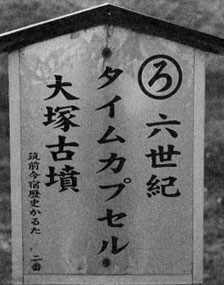 ろ 六世紀
タイムカプセル
大塚古墳
筑前今宿歴史かるた 二番